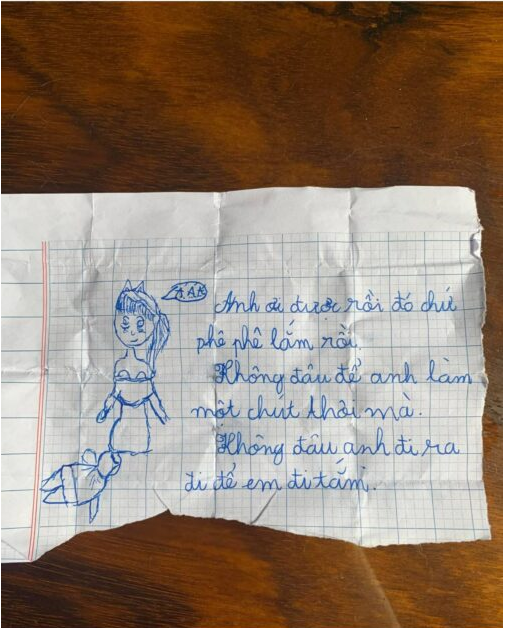 AAK
Anh ơi được rồi đó chứ
phê phê lắm rồi.
Không đâu để anh làm
một chút thôi mà.
Không đâu anh đi ra
đi để em đi tắm.